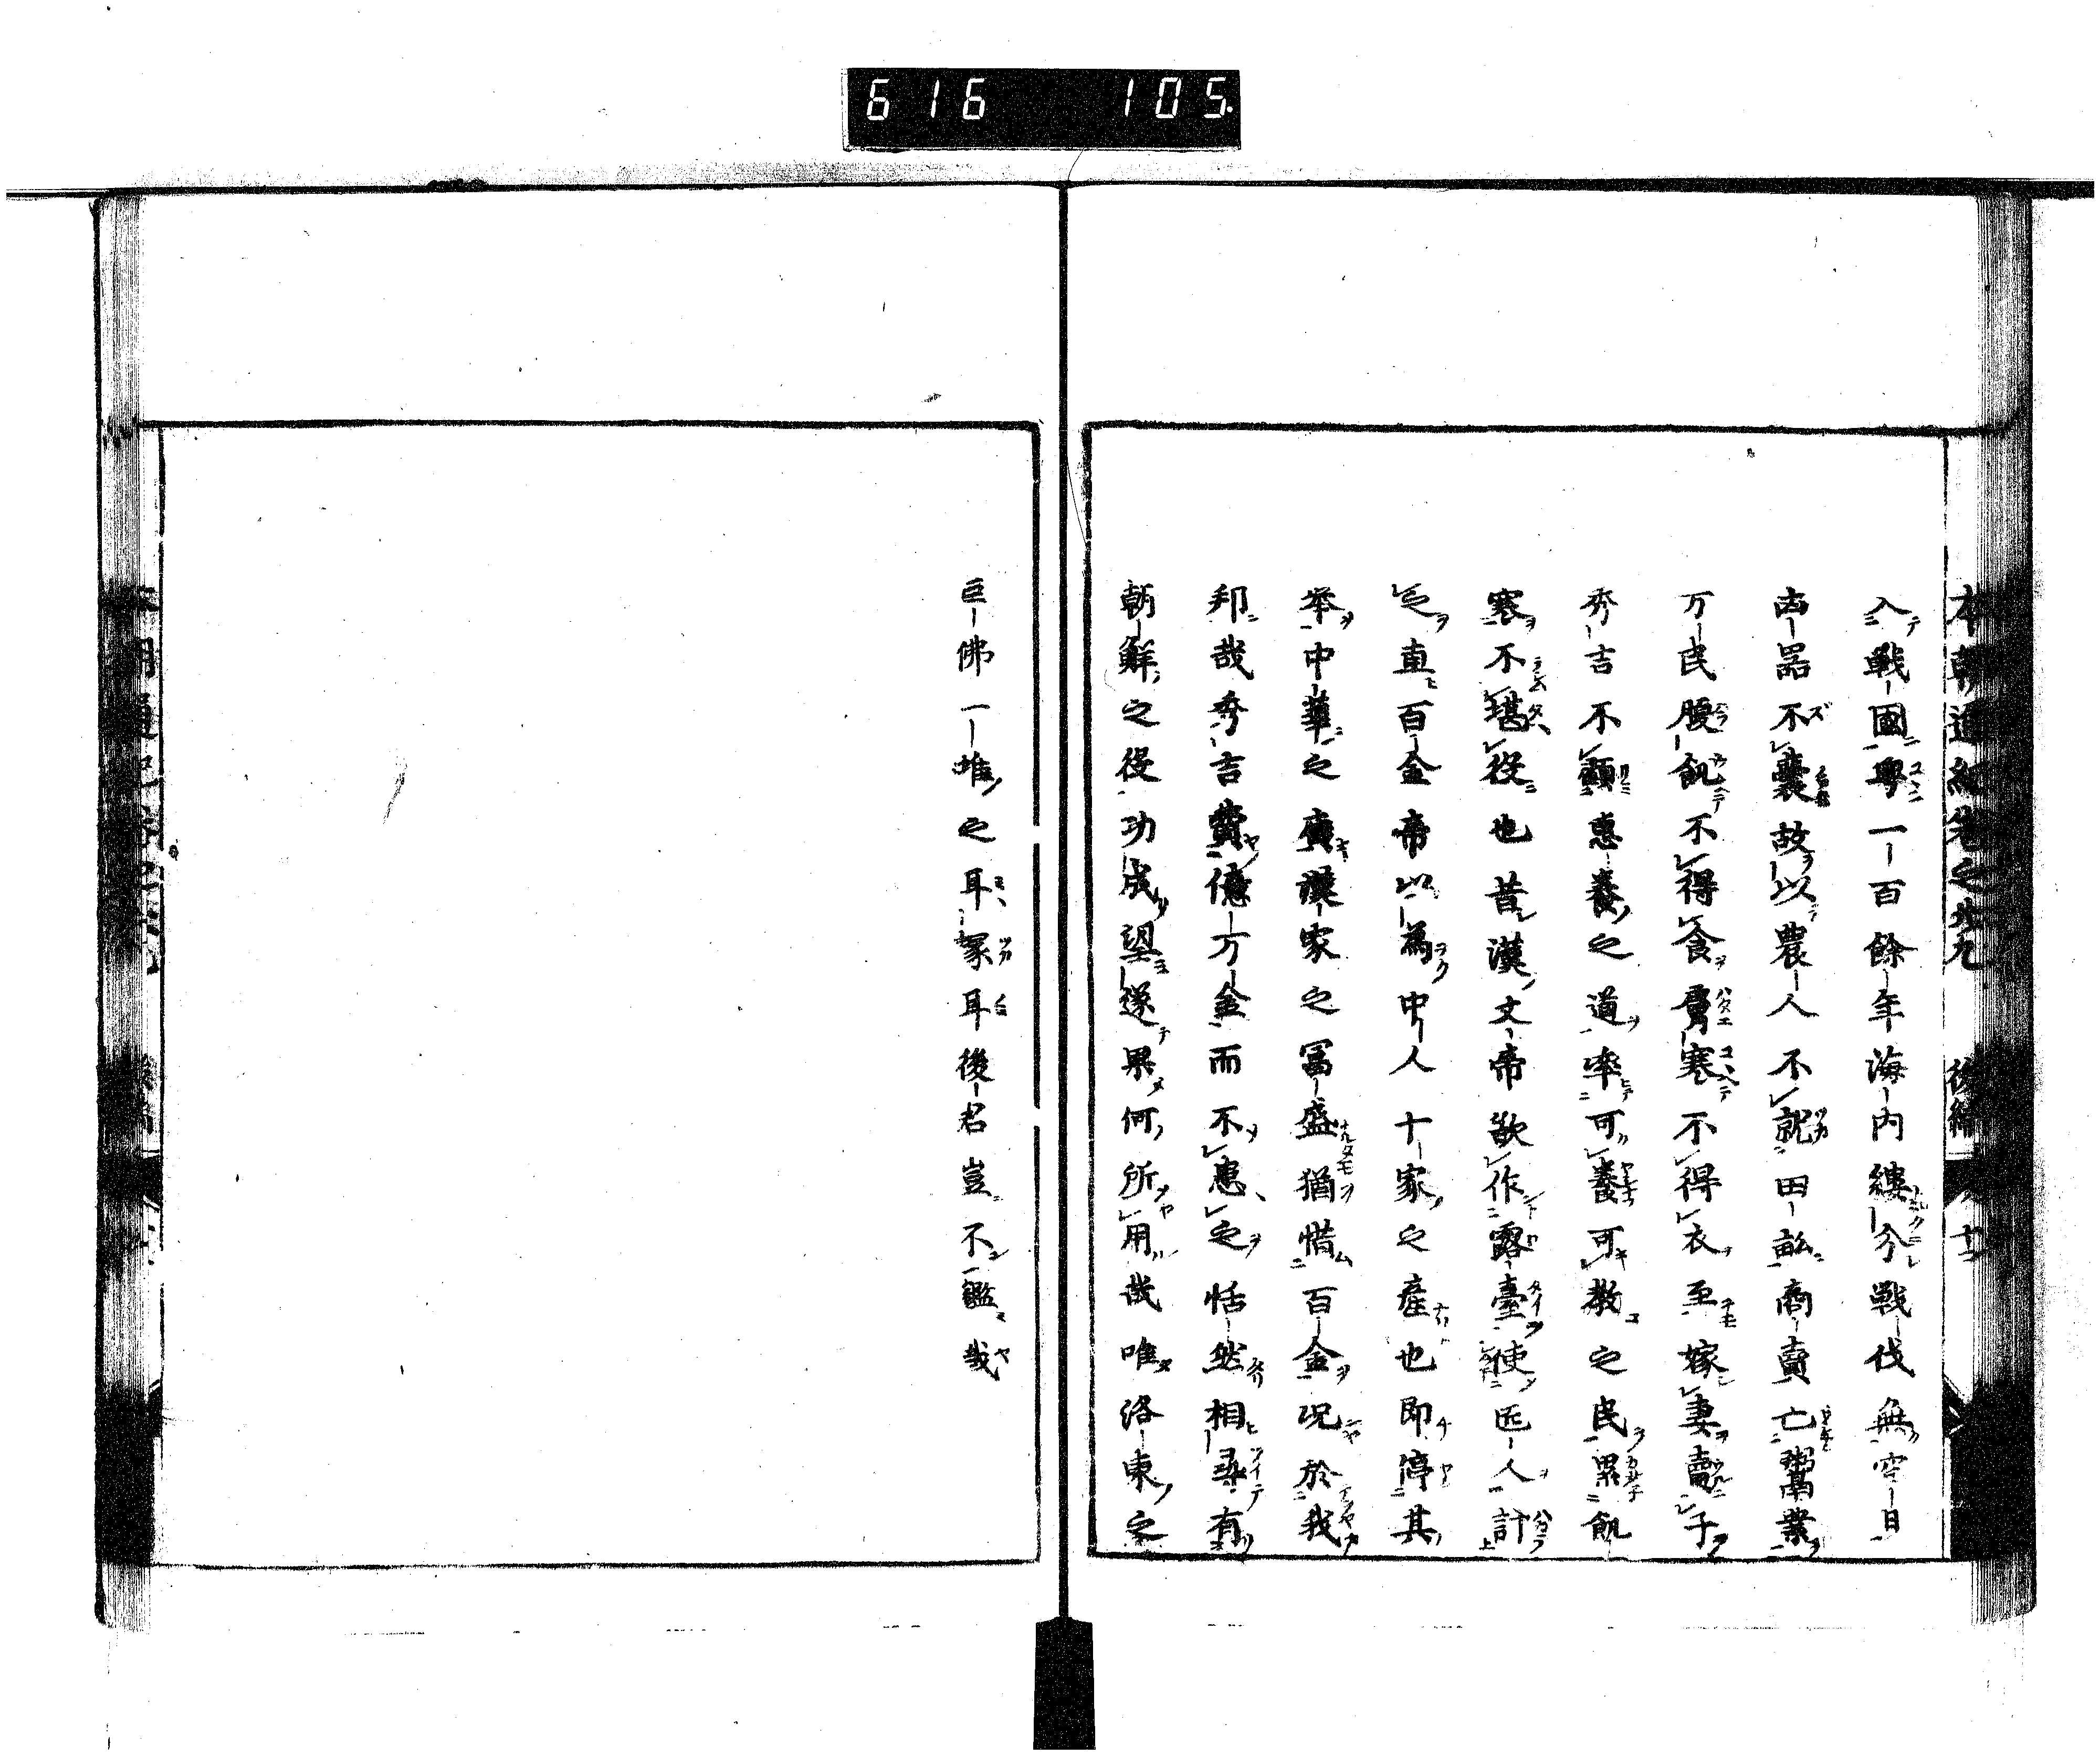 616 105
本朝通紀卷之廿九 後編 十二
入戰國粤一百餘年海内縷分戰伐無空日
凶器不囊故以農人不就田畝商賣亡鬻業
万民腹飢不得食膚寒不得衣至嫁妻賣子
秀吉不顧惠養之道率可養可教之民累飢
寒不堪役也昔漢文帝欲作露臺使匠人計
之直百金帝以為中人十家之産也即停其
挙中華之廣漢家之冨盛猶惜百金况於我
邦哉秀吉費億万金而不患之恬然相尋有
朝鮮之役功成望遂果何所用哉唯洛東之
巨佛一堆之耳冢耳後君豈不鑑哉